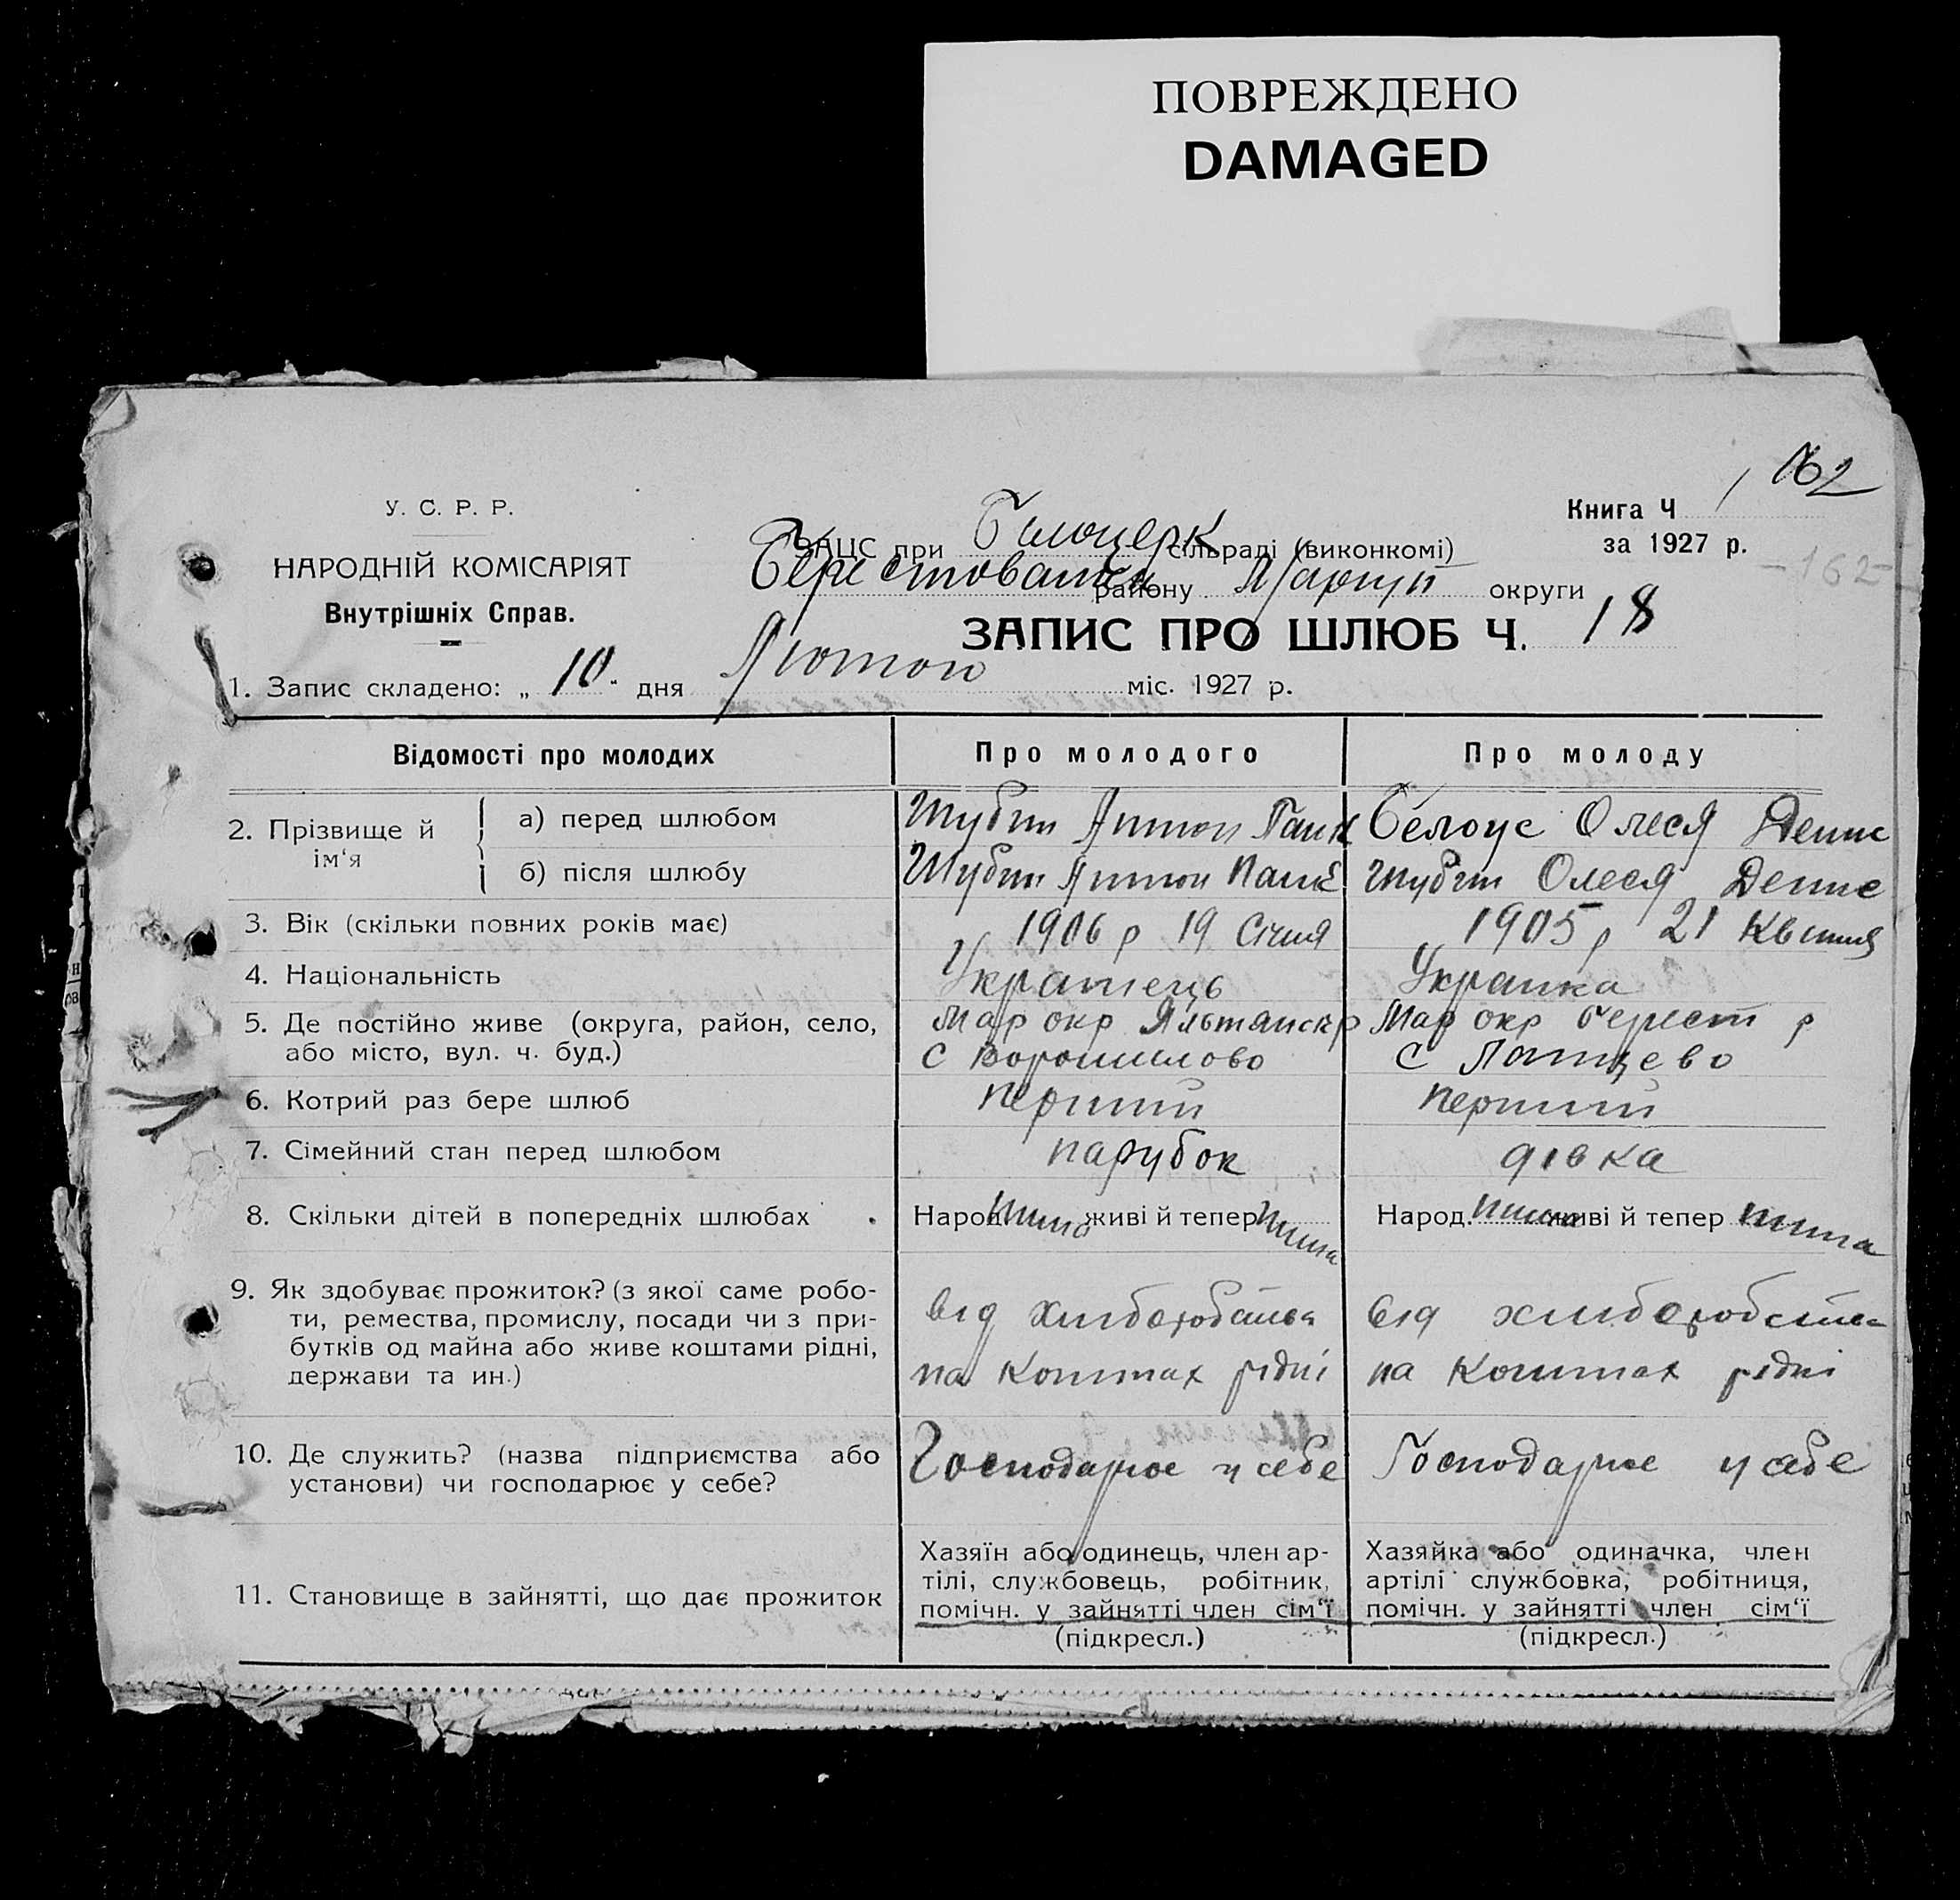 ПОВРЕЖДЕНО
DAMAGED
162
У. С. Р. Р.
НАРОДНІЙ КОМІСАРІЯТ
Внутрішніх Справ.
ЗАЦС при Білоцерк сільраді (виконкомі)
району Маріуп округи
Книга Ч
за 1927 р.
-162-
ЗАПИС ПРО ШЛЮБ Ч. 18
1. Запис складено: „ 10 " дня Лютого міс. 1927 р.
Відомості про молодих Про молодого Про молоду
2. Прізвище й ім'я
а) перед шлюбом Шубин Антон Белоус Олеся Денис
б) після шлюбу Шубин Антон Шубин Олеся Денис
3. Вік (скільки повних років має) 1906 р 19 Січня 1905 р 21 Квітня
4. Національність Українець Українка
5. Де постійно живе (округа, район, село, Мар окр Ялтянск р Мар окр Берест р
або місто, вул. ч. буд.) С Ворошилово С
6. Котрий раз бере шлюб перший перший
7. Сімейний стан перед шлюбом парубок дівка
8. Скільки дітей в попередніх шлюбах . Народ. нима живі й тепер нима Народ. нима живі й тепер нима
9. Як здобуває прожиток? (з якої саме робо-
ти, ремества, промислу, посади чи з при-
бутків од майна або живе коштами рідні,
держави та ин.)
від хлиборобства
на Коштах рідні
від хлиборобства
на Коштах рідні
10. Де служить? (назва підприємства або
установи) чи господарює у себе?
Господарює у себе Господарює у себе
11. Становище в зайнятті, що дає прожиток
Хазяїн або одинець, член ар-
тілі, службовець, робітник,
помічн. у зайнятті член сім'ї
(підкресл.)
Хазяйка або одиначка, член
артілі службовка, робітниця,
помічн. у зайнятті член сім'ї
(підкресл.)